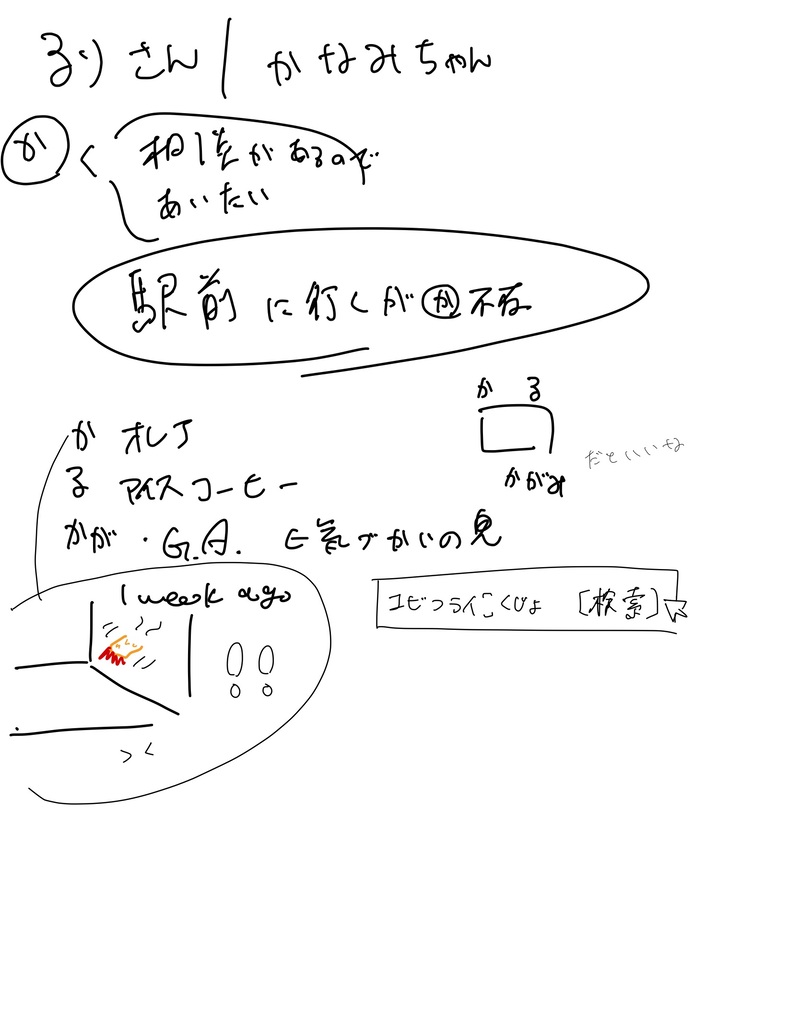 るりさん/かなみちゃん
か く 相談があるので
あいたい
駅前に行くがか不在
か る
かがみ
だといいな
か オレブ
る アイスコーヒー
かが・G.A. 気づかいの鬼
1 week ago
エビフライこくびょ [検索]